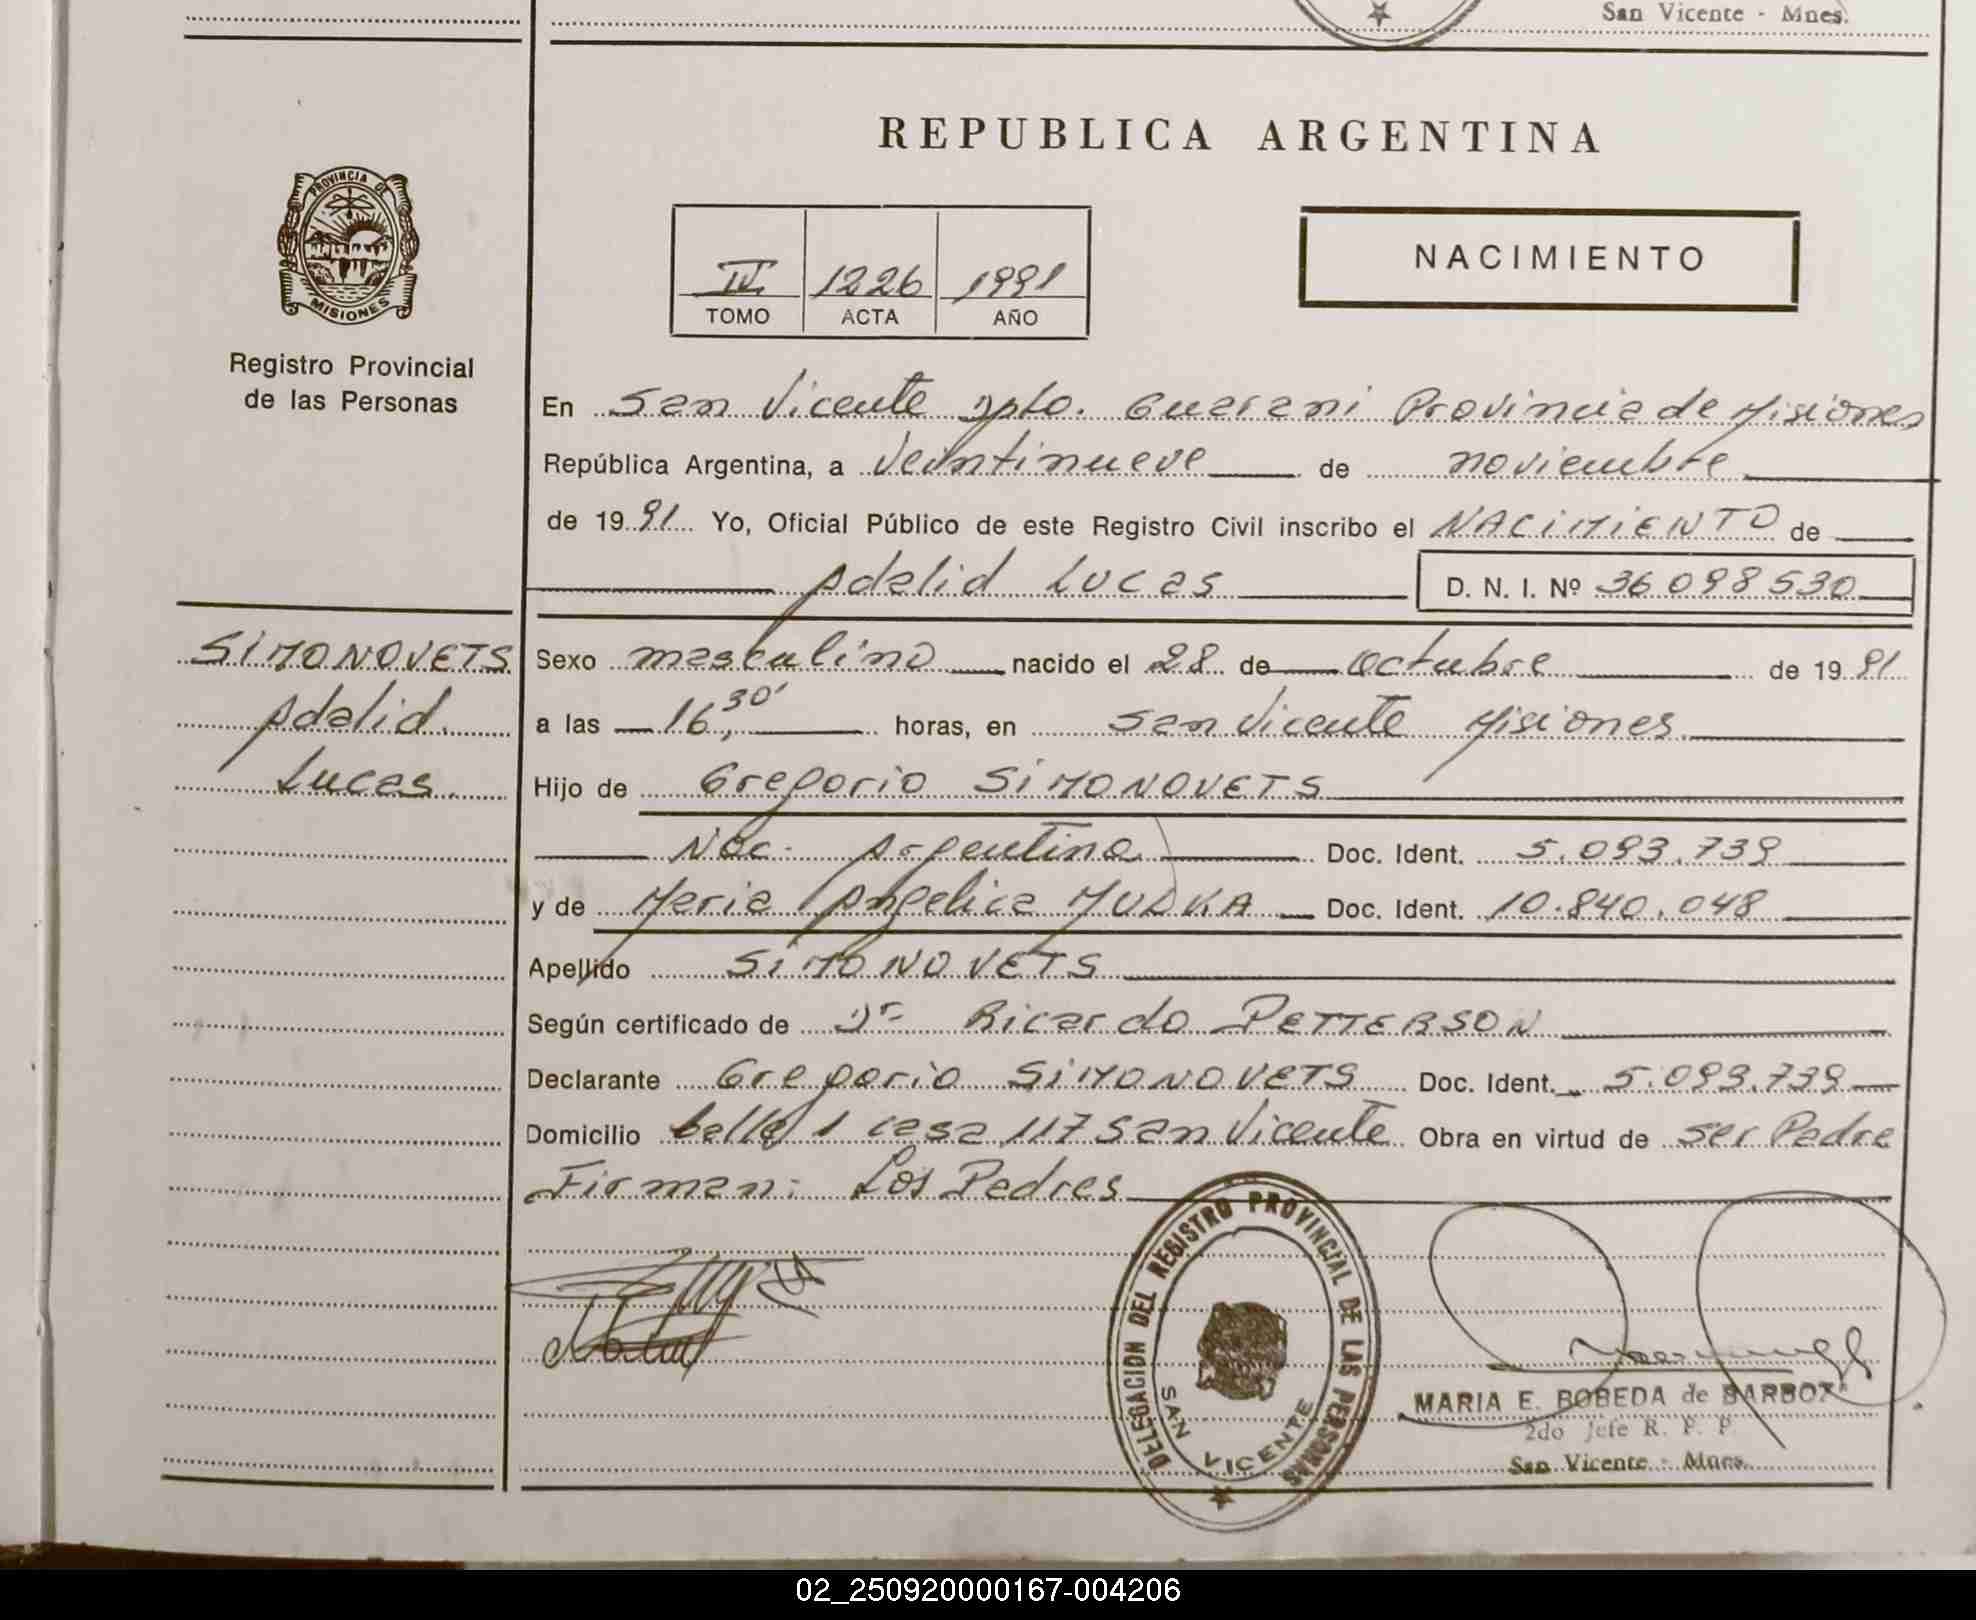 San Vicente - Mnes.
REPUBLICA ARGENTINA
PROVINCIA DE
MISIONES
Registro Provincial
de las Personas
IV 1226 1991
TOMO ACTA AÑO
NACIMIENTO
En San Vicente Dpto. Guarani Provincia de Misiones
República Argentina, a Veintinueve de noviembre
de 1991 Yo, Oficial Público de este Registro Civil inscribo el NACIMIENTO de
Adalid Lucas D. N. I. Nº 36098530
SIMONOVETS
Adalid
Lucas.
Sexo masculino nacido el 28 de octubre de 1991
a las 16,30' horas, en San Vicente Misiones
Hijo de Gregorio SIMONOVETS
Nac. Argentina Doc. Ident. 5.093.739
y de Maria Angelica MULKA Doc. Ident. 10.840.048
Apellido SIMONOVETS
Según certificado de Dr Ricardo PETTERSON
Declarante Gregorio SIMONOVETS Doc. Ident. 5.093.739
Domicilio calle 1 casa 117 San Vicente Obra en virtud de ser Padre
Firman: Los Padres
DELEGACION DEL REGISTRO PROVINCIAL DE LAS PERSONAS
SAN VICENTE
MARIA E. BOBEDA de BARBOZA
2do Jefe R. P. P.
San Vicente - Mnes.
02_250920000167-004206